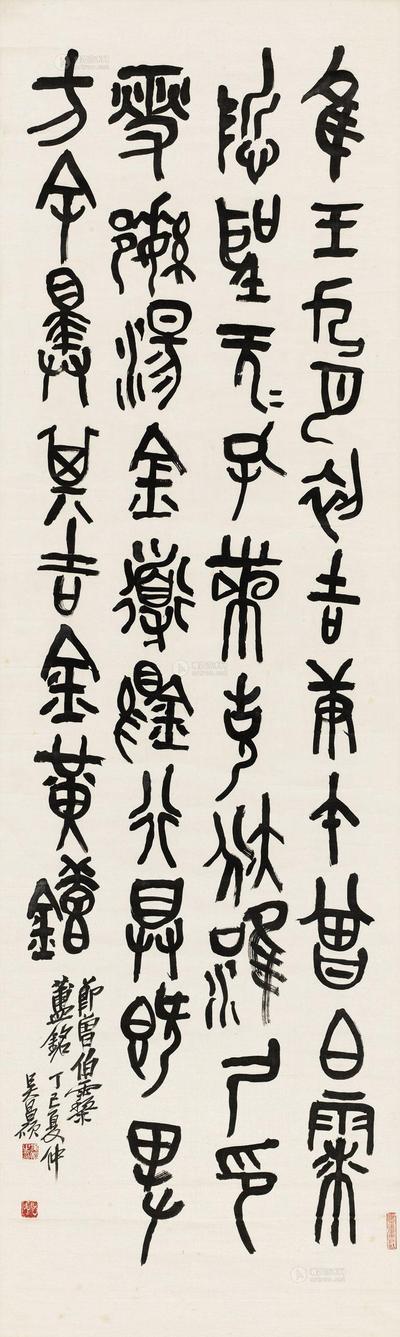 隹王九月初吉庚午曾白霥
悊聖元=孔黹克狄淮尸印
燮繁湯金道錫行具既卑
方余擇其吉金黃鑪
節曾伯霥
簠銘 丁巳夏仲
吳昌碩